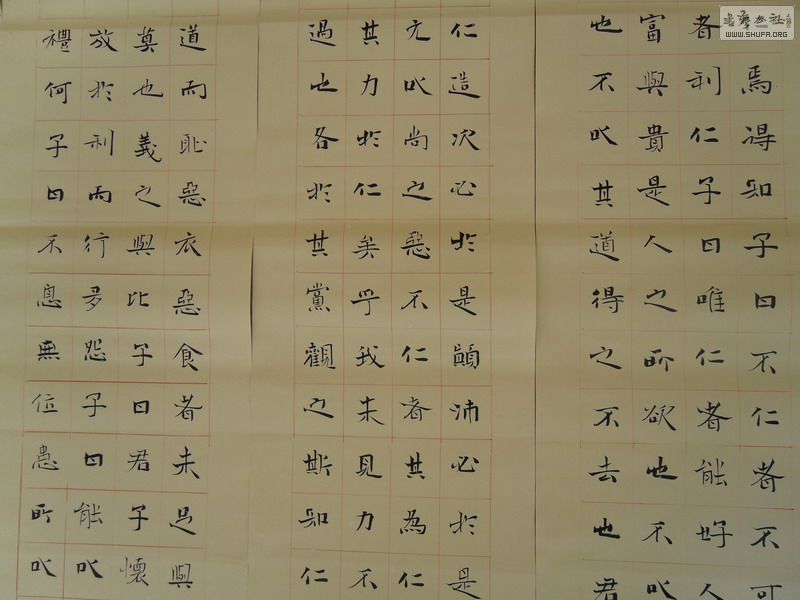 焉得知子曰不仁者不可
者利仁子曰唯仁者能好人
富與貴是人之所欲也不以
也不以其道得之不去也君
仁造次必於是顛沛必於是
无以尚之惡不仁者其為仁
其力於仁矣乎我未見力不
過也各於其黨觀之斯知仁
道而恥惡衣惡食者未足與
莫也義之與比子曰君子懷
放於利而行多怨子曰能以
禮何子曰不患無位患所以
書藝公社
WWW.SHUFA.ORG